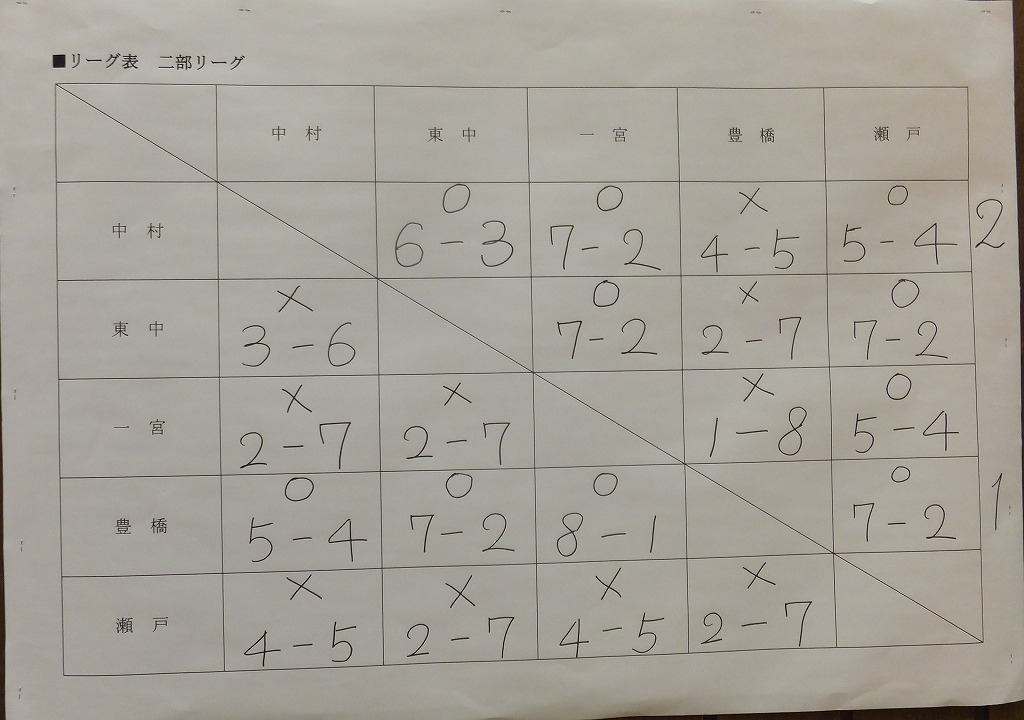 ■リーグ表 二部リーグ
中村 東中 一宮 豊橋 瀬戸
中村 ○ ○ × ○
6-3 7-2 4-5 5-4 2
東中 × ○ × ○
3-6 7-2 2-7 7-2
一宮 × × × ○
2-7 2-7 1-8 5-4
豊橋 ○ ○ ○ ○
5-4 7-2 8-1 7-2 1
瀬戸 × × × ×
4-5 2-7 4-5 2-7